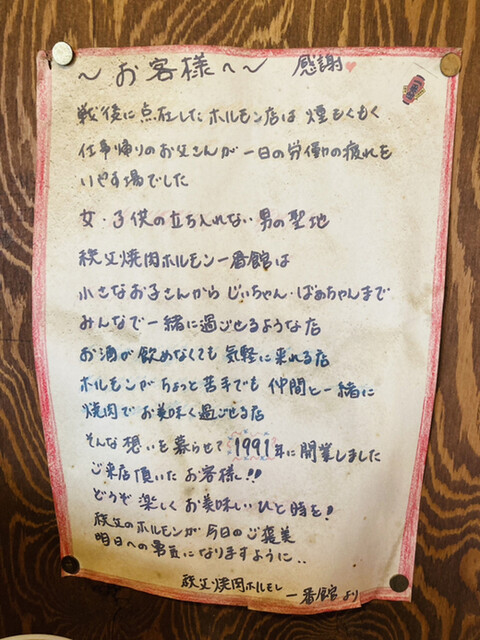 ～お客様へ～ 感謝♥
戦後に点在したホルモン店は 煙もくもく
仕事帰りのお父さんが 一日の労働の疲れを
いやす場でした
女・子供の立ち入れない男の聖地
秩父焼肉ホルモン一番館は
小さなお子さんから じいちゃん・ばあちゃんまで
みんなで一緒に過ごせるような店
お酒が飲めなくても 気軽に来れる店
ホルモンがちょっと苦手でも 仲間と一緒に
焼肉で お美味く過ごせる店
そんな想いを募らせて 1991年に開業しました
ご来店頂いたお客様!!
どうぞ 楽しくお美味しいひと時を!
秩父のホルモンが 今日のご褒美
明日への勇気になりますように..
秩父焼肉ホルモン
一番館より